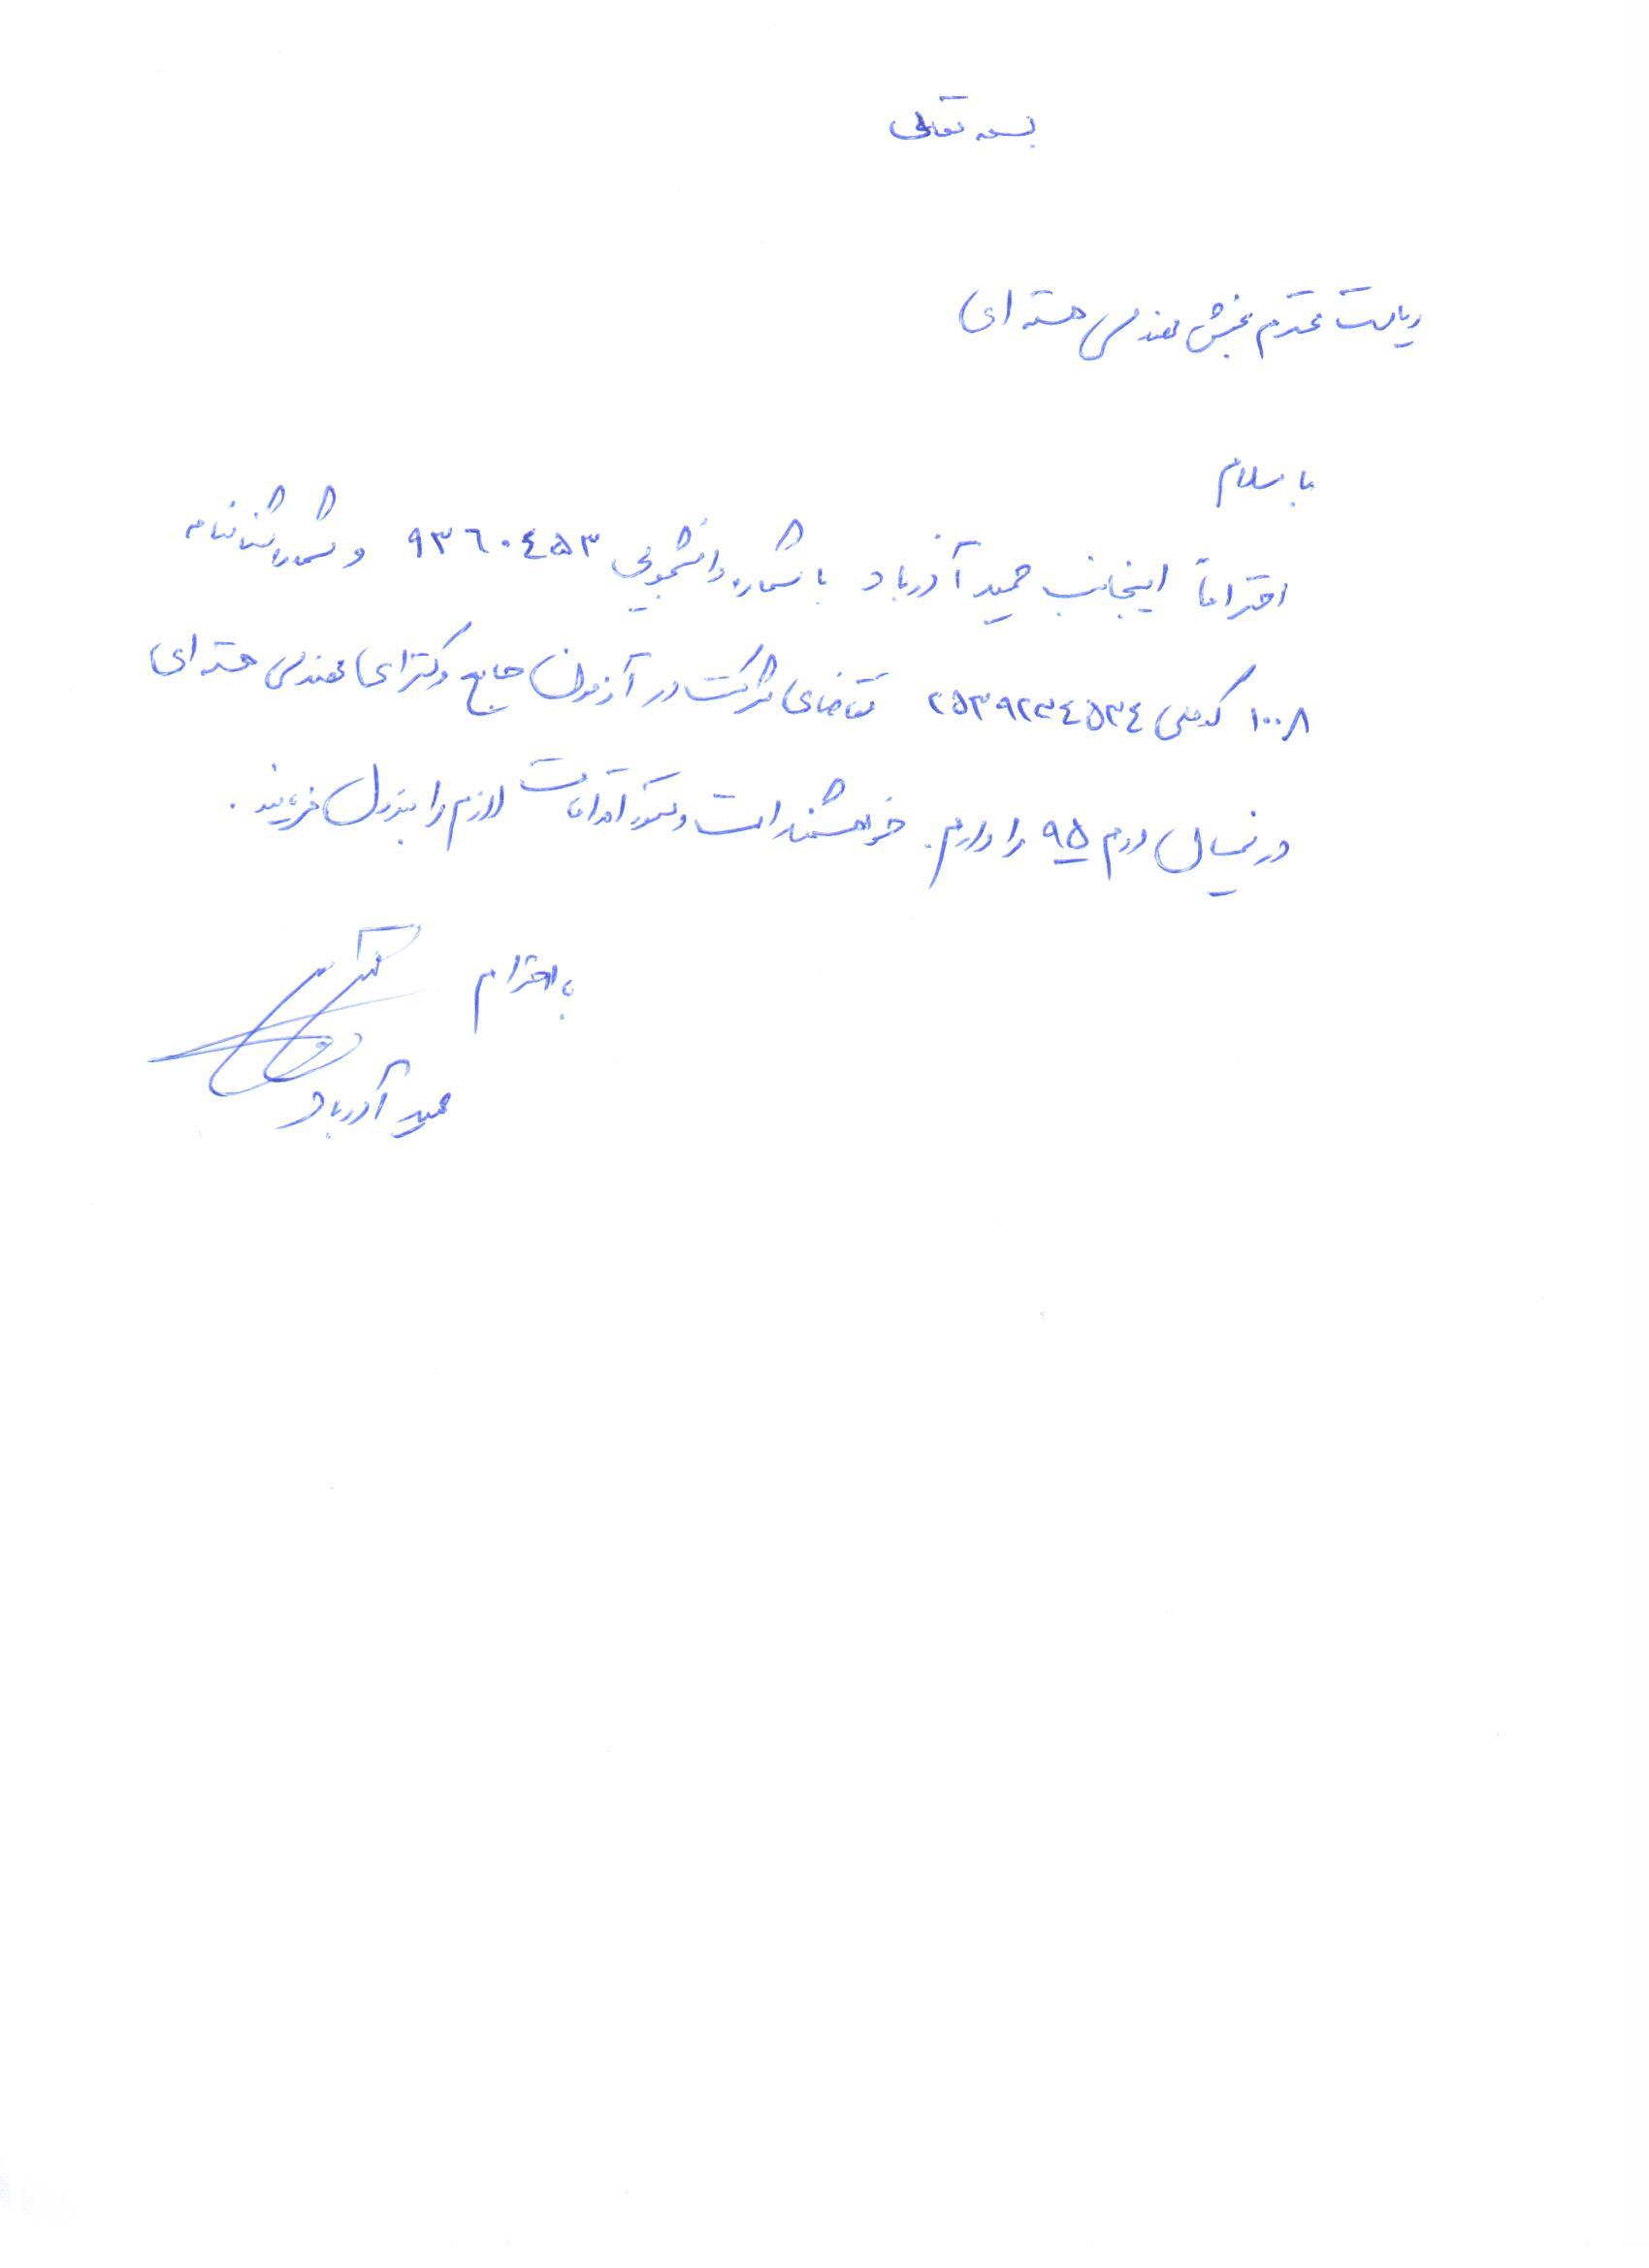 بسمه تعالی
ریاست محترم بخش مهندسی هسته ای
با سلام
احتراماً اینجانب حمید آذرباد با شماره دانشجویی ۹۳۶۰۴۵۳ و شماره شناسنامه
۱۰۰۸ کدملی ۲۵۳۹۲۳۴۵۳۴ تقاضای شرکت در آزمون جامع دکترای مهندسی هسته ای
در نیمسال دوم ۹۵ را دارم. خواهشمند است دستور اقدامات لازم را مبذول فرمایید.
با احترام
حمید آذرباد